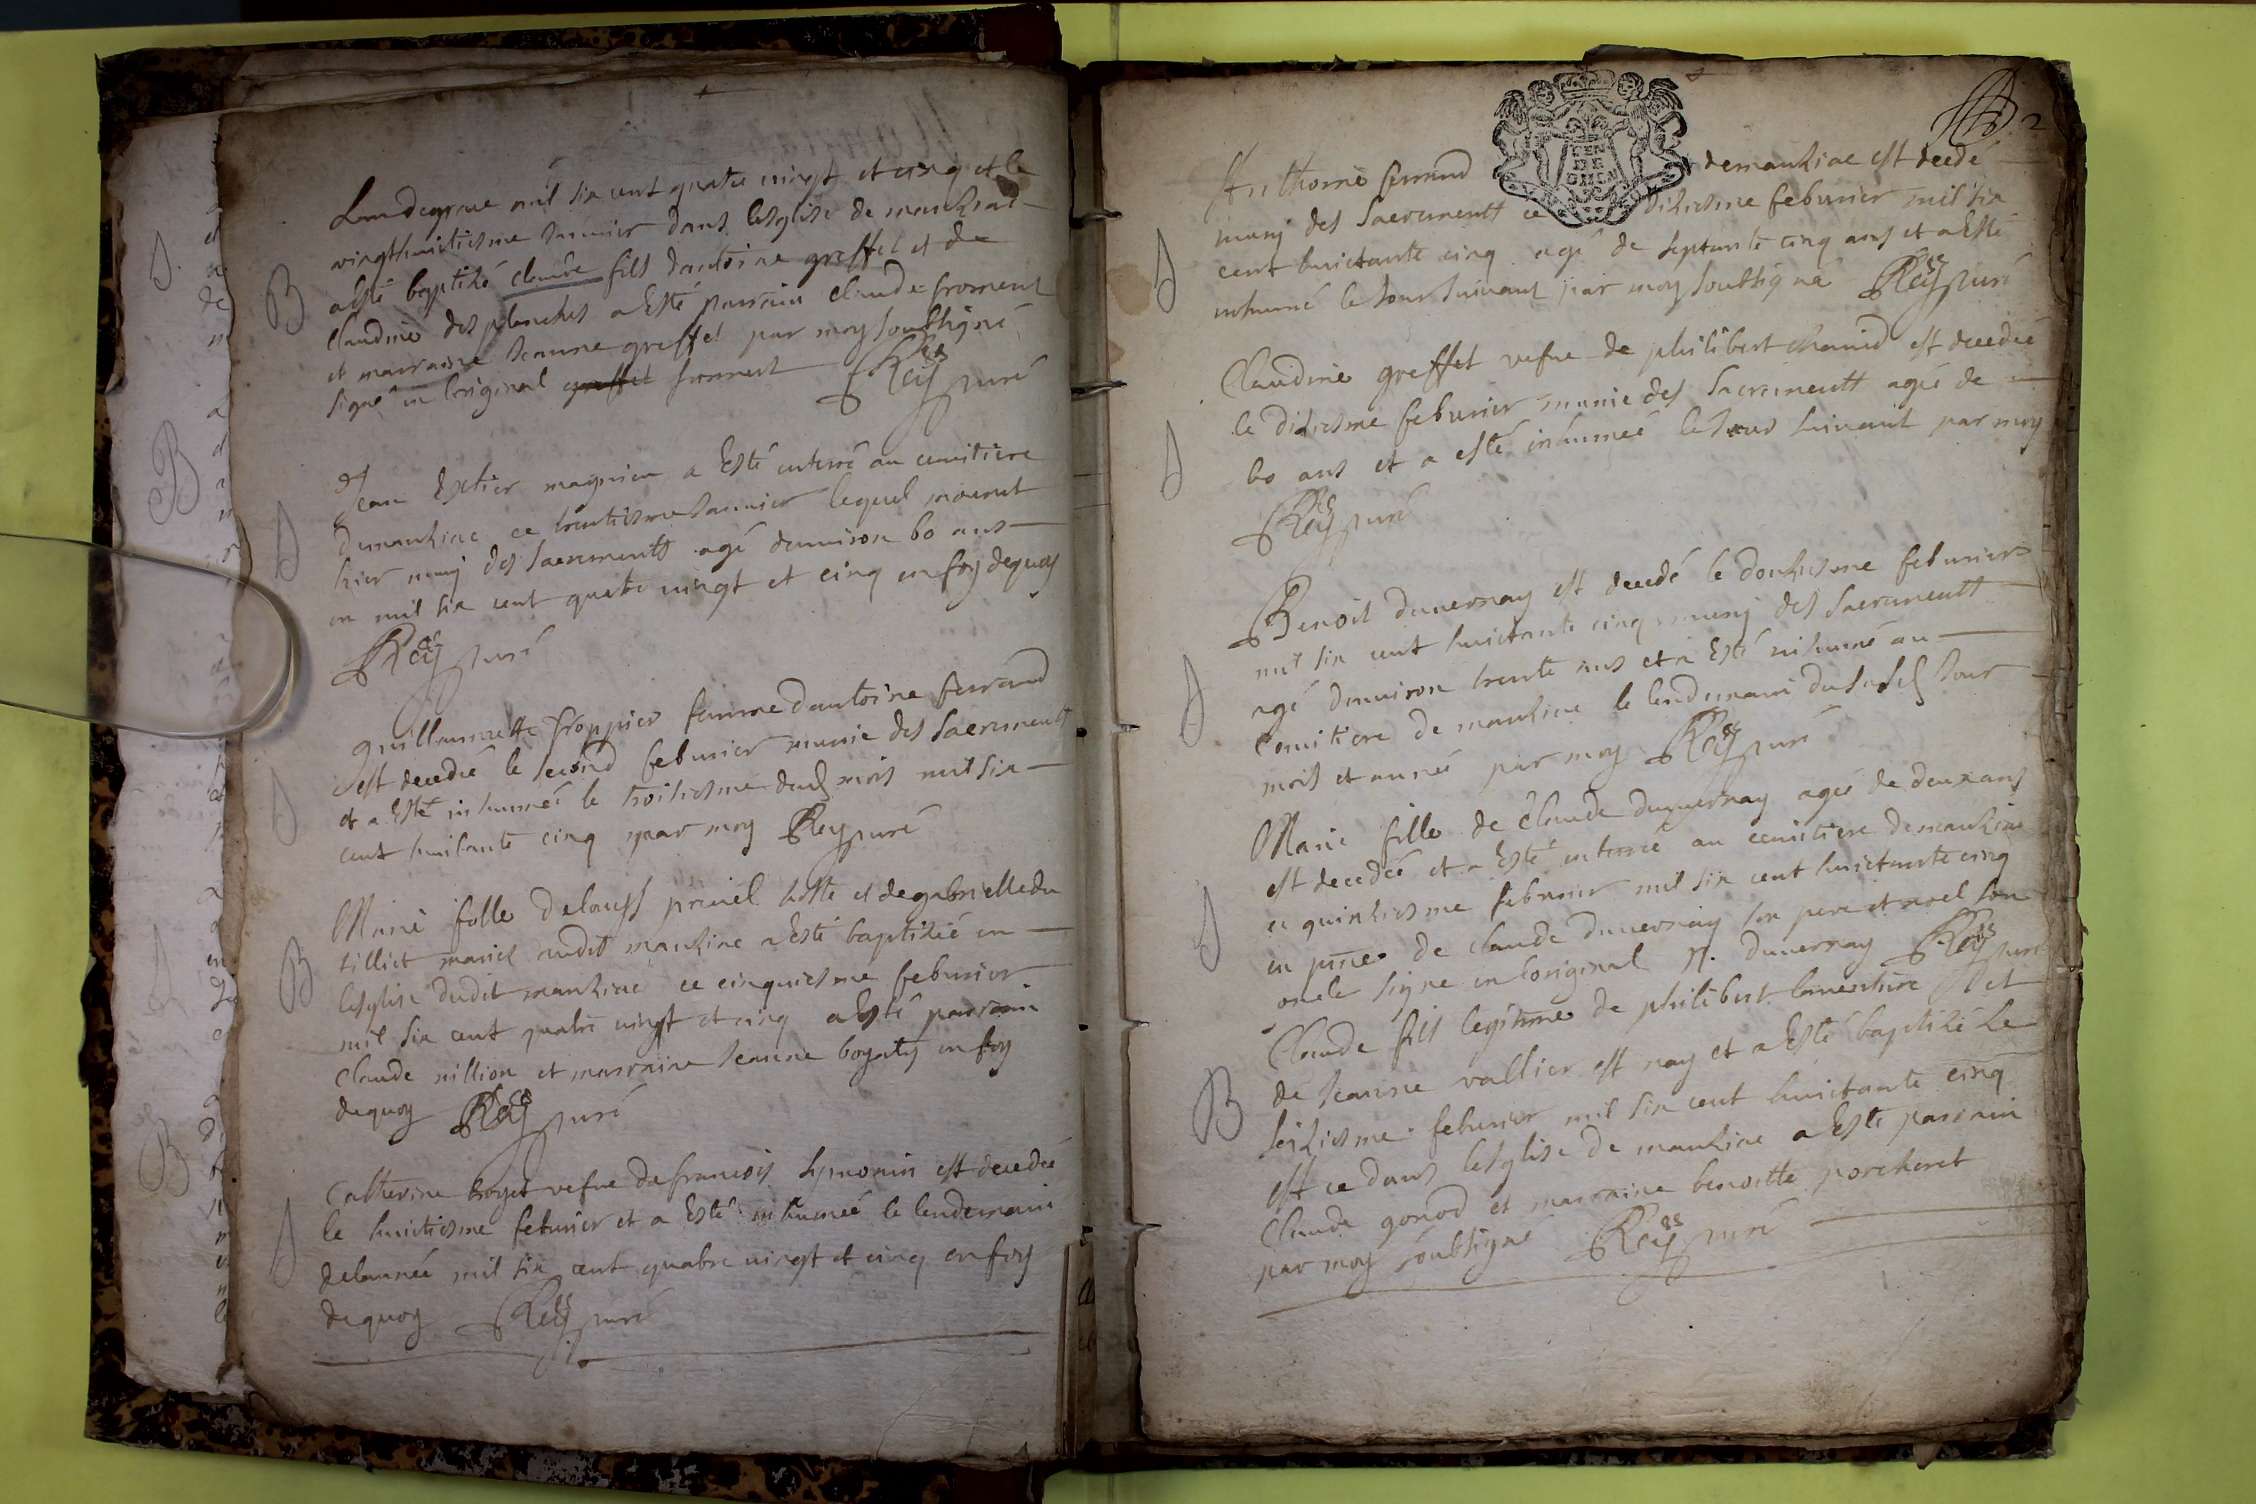 Lan de grace mil six cent quatre vingt et cinq et le
vingthuitiesme Januier dans lesglise de manziac
a esté baptizé claude fils dantoine greffet et de
claudine des planches a Esté parrain claude froment
et marraine Jeanne greffet par moy soubsigné
signé en loriginal froment Rey curé
B
Jean magnien a Esté enterré au cemitiere
de manziac ce trentiesme Januier lequel mourut
hier muny des Sacrementz agé denuiron 60 ans
en mil six cent quatre vingt et cinq en foy dequoy
Rey curé
guillemette froppier femme dantoine ferrand
est decedée le second feburier munie des Sacrementz
et a Esté inhumée le troisiesme dud mois mil six
cent huitante cinq par moy Rey curé
Marie fille de louys hoste et de gabrielle du
tilliet mariés audit manziac a Esté baptizée en
lesglise dudit manziac ce cinquiesme feburier
mil six cent quatre vingt et cinq a Esté parrain
claude et marraine Jeanne en foy
dequoy Rey curé
B
Catherine boyet vefue de francois symonin est decedée
le huictiesme feburier et a Esté inhumée le lendemain
de lannée mil six cent quatre vingt et cinq en foy
dequoy Rey curé
2
GEN
DE
Anthoine ferrand de manziac est decedé
muny des Sacrementz ce diziesme feburier mil six
cent huictante cinq agé de septante cinq ans et a Esté
inhumé le Jour suiuant par moy soubsigné Rey curé
Claudine greffet vefue de philibert chanud est decedée
le diziesme feburier munie des Sacrementz agée de
60 ans et a esté inhumée le Jour suiuant par moy
Rey curé
Benoit duuernay est decedé le douziesme feburier
mil six cent huictante cinq muny des Sacrementz
agé denuiron trente ans et a Esté inhumé au
Cemitiere de manziac le lendemain du susd Jour
mois et année par moy Rey curé
Marie fille de Claude duuernay agée de deux ans
est decedée et a Esté enterré au cemitiere de manziac
ce quinziesme feburier mil six cent huictante cinq
en pnce de claude duuernay son pere et noel son
oncle signe en loriginal N. duuernay Rey curé
Claude fils legitime de philibert lauenture et
de Jeanne vallier est nay et a Esté baptizé le
seiziesme feburier mil six cent huictante cinq
est ce dans lesglise de manziac a Esté parrain
Claude gonod et marraine benoitte porcheret
par moy soubsigné Rey curé
B